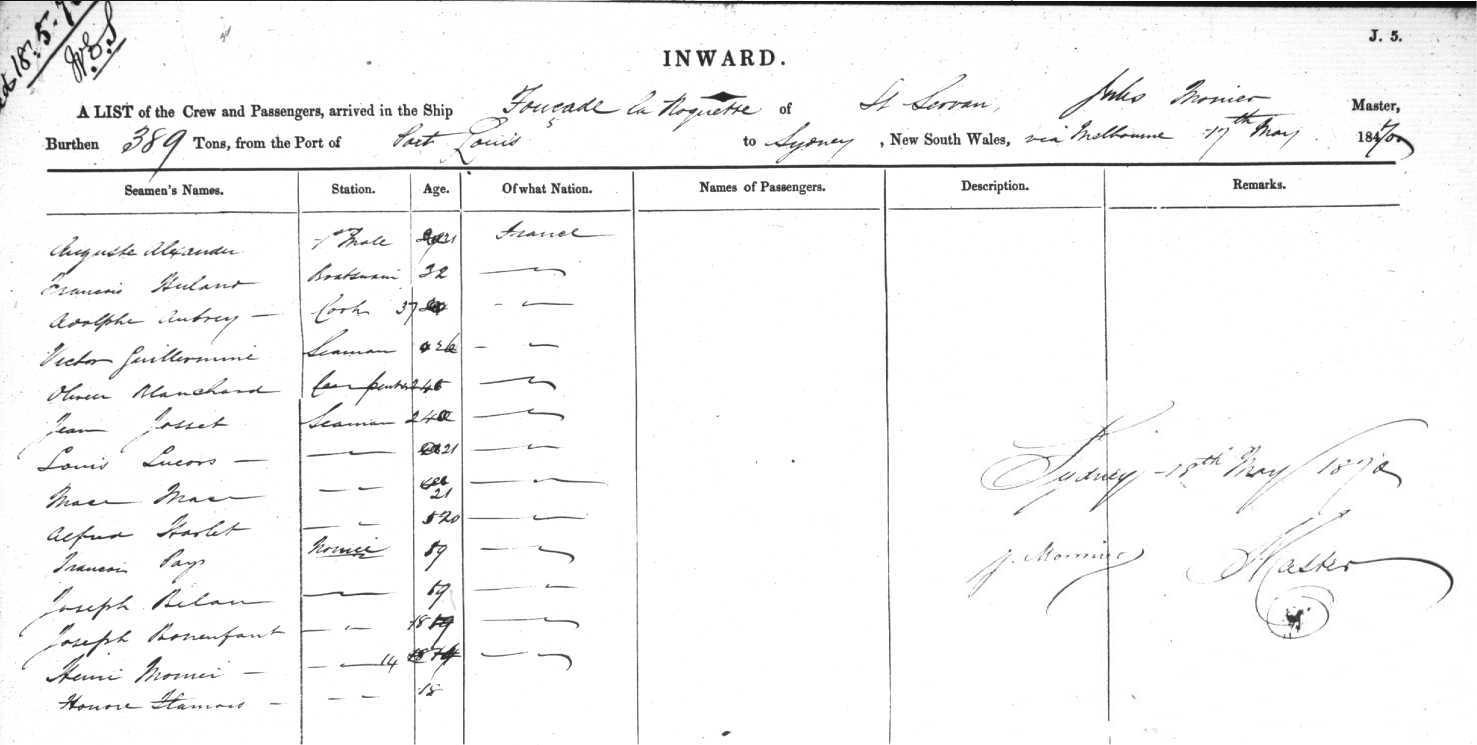 18.5.7
W.E.S
J. 5.
INWARD.
A LIST of the Crew and Passengers, arrived in the Ship Foucade la Roquette of St Servan, Jules Monier Master,
Burthen 389 Tons, from the Port of Port Louis to Sydney, New South Wales, via Melbourne 17th May 1870
Seamen's Names. Station. Age. Of what Nation. Names of Passengers. Description. Remarks.
Auguste Alexander 1st Mate 21 France
Francois Huland Boatswain 32 —
Adolphe Aubrey — Cook 37 —
Victor Guillermine Seaman 26 —
Olivier Blanchard Carpenter 24 —
Jean Josset Seaman 24 —
Louis Lucors — — 21 —
Mace Mace — — 21 —
Alfred Harlet — — 20 —
Francois Pays Novice 19 —
Joseph Bilan — 19 —
Joseph Bonenfant — — 18 —
Henri Monier — — — 14 —
Honore Hamois — — — 18
Sydney 18th May 1870
J. Monnier Master